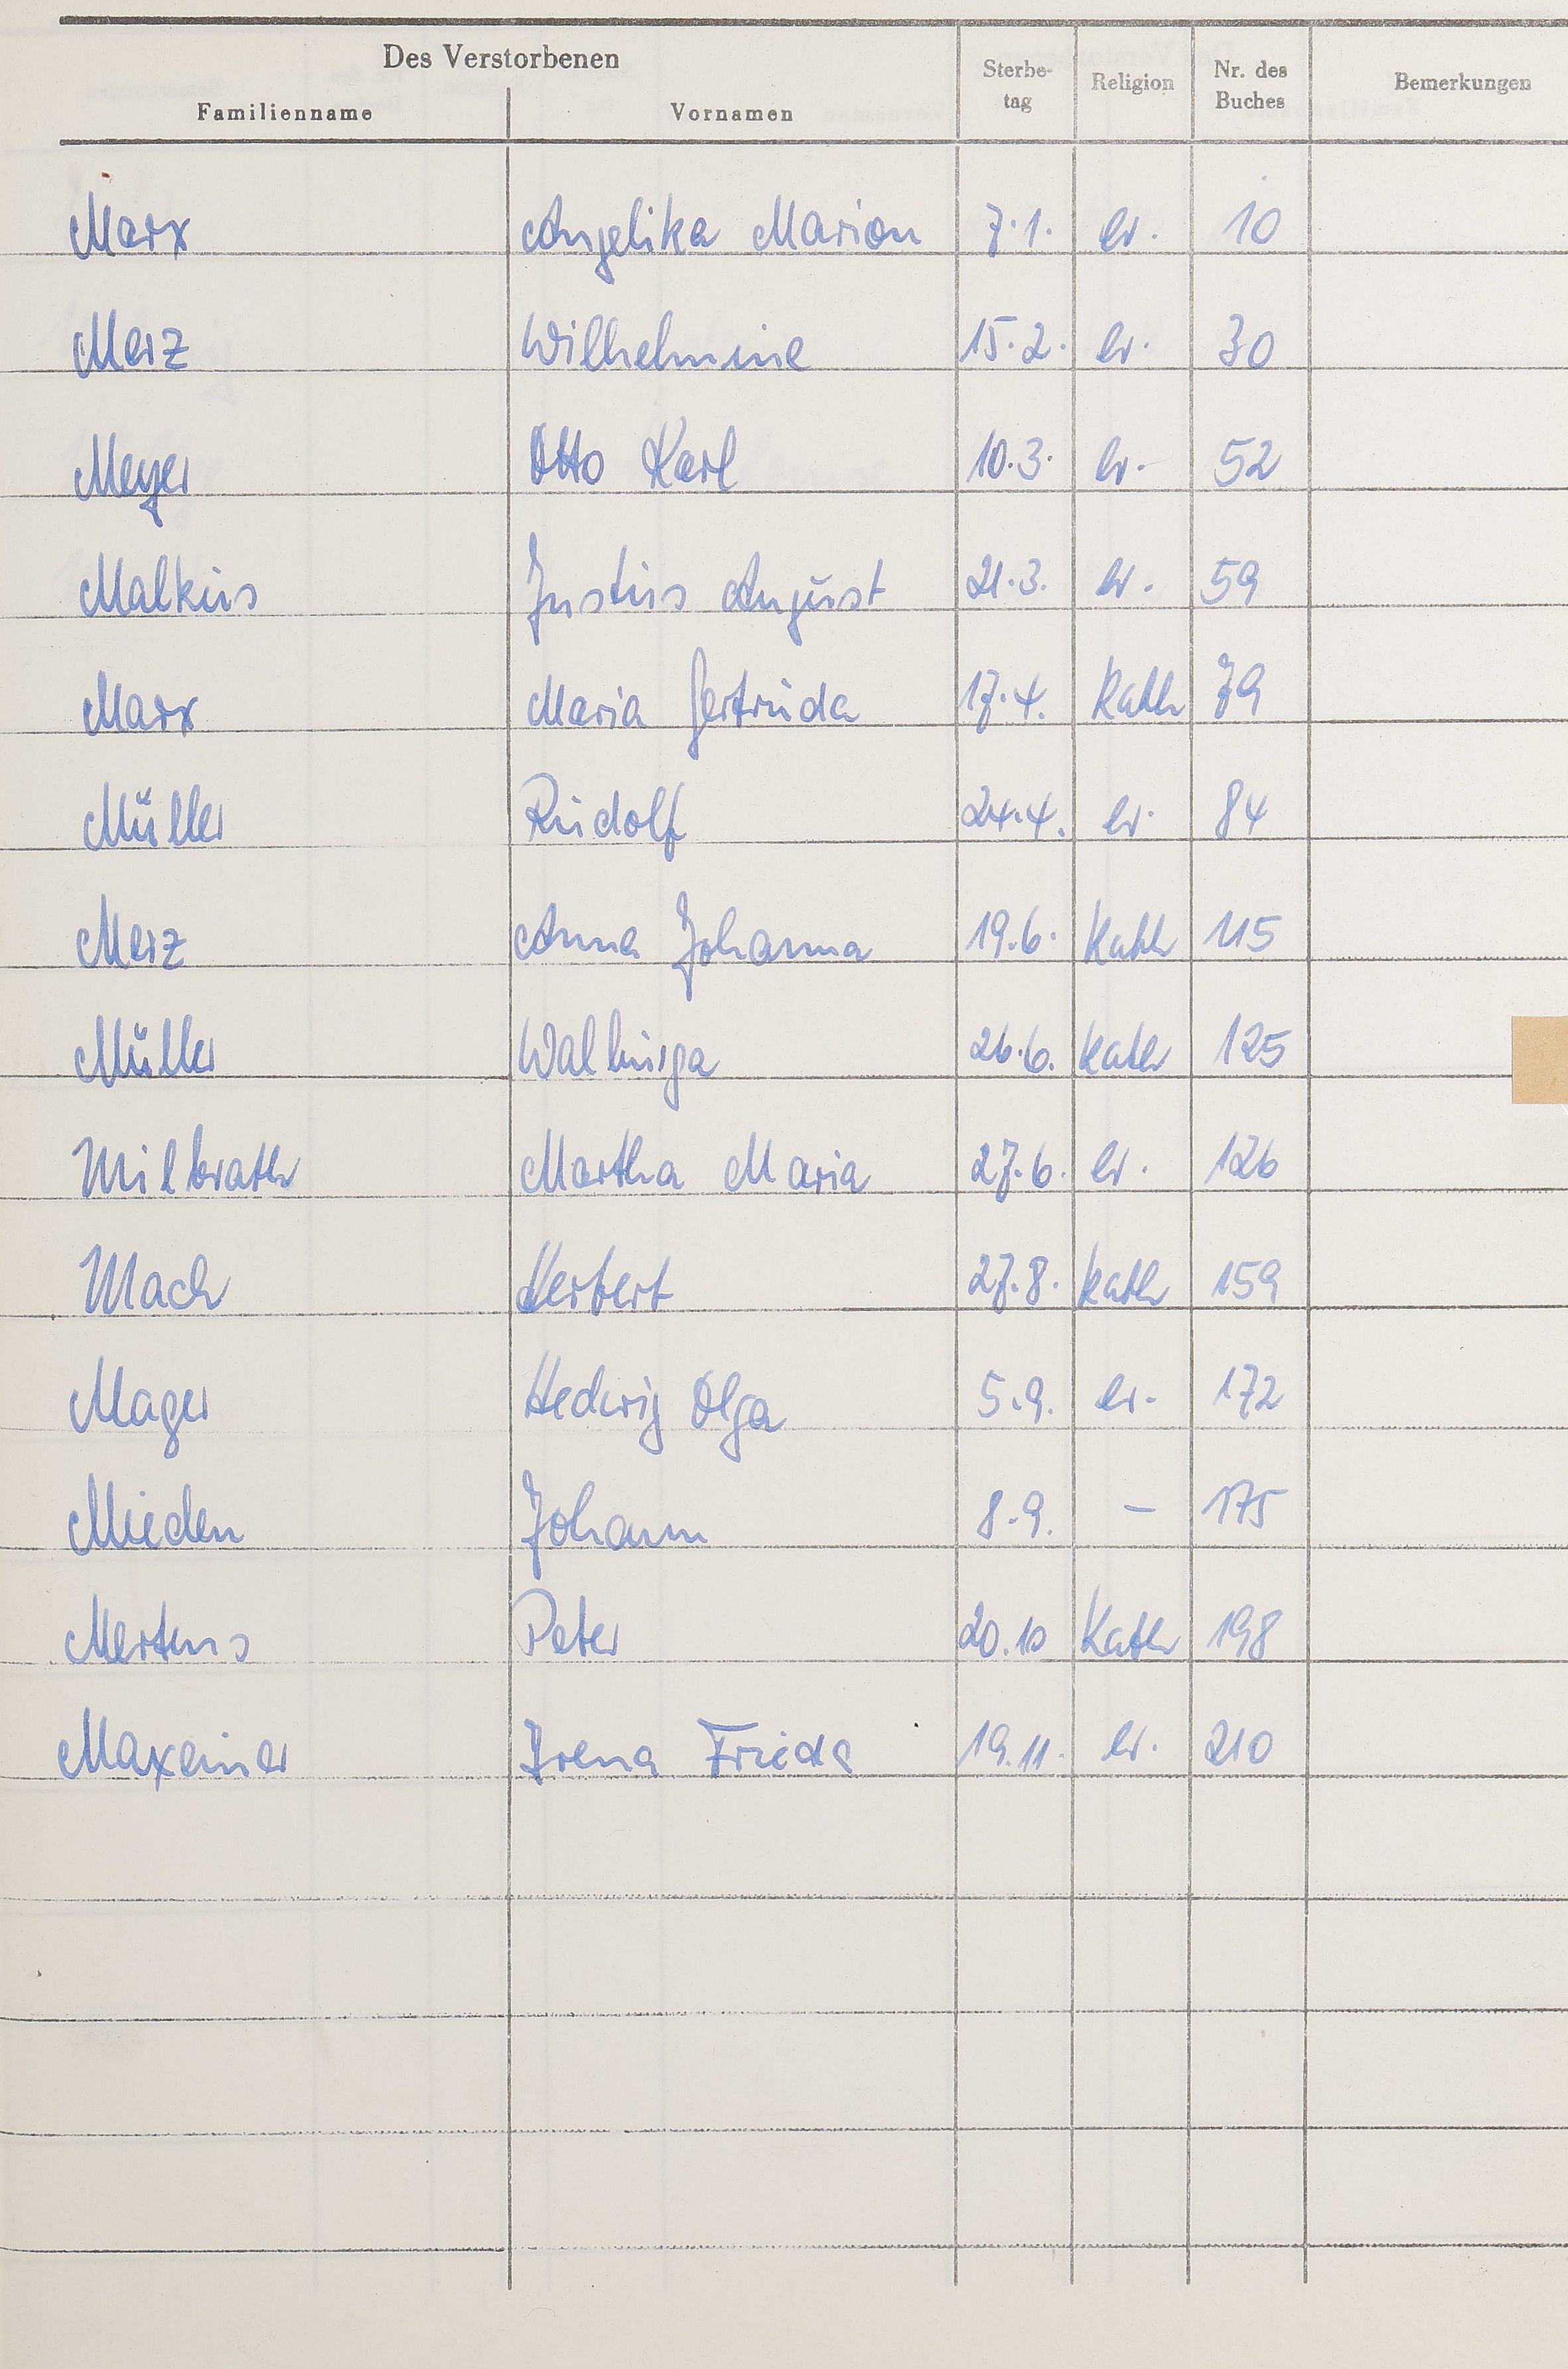 Des Verstorbenen
Familienname Vornamen Sterbe-tag Religion Nr. des Buches Bemerkungen
Marx Angelika Marion 7.1. ev. 10
Merz Wilhelmine 15.2. ev. 30
Meyer Otto Karl 10.3. ev. 52
Malkus Justus August 21.3. ev. 59
Marx Maria Gertruda 17.4. Kath 79
Müller Rudolf 24.4. ev. 84
Merz Anna Johanna 19.6. Kath 115
Müller Walburga 26.6. kath 125
Milbrath Martha Maria 27.6. ev. 126
Mach Herbert 27.8. kath 159
Mager Hedwig Olga 5.9. ev. 172
Mieden Johann 8.9. – 175
Mertens Peter 20.10 Kath 198
Maxeiner Irena Frieda 19.11. ev. 210